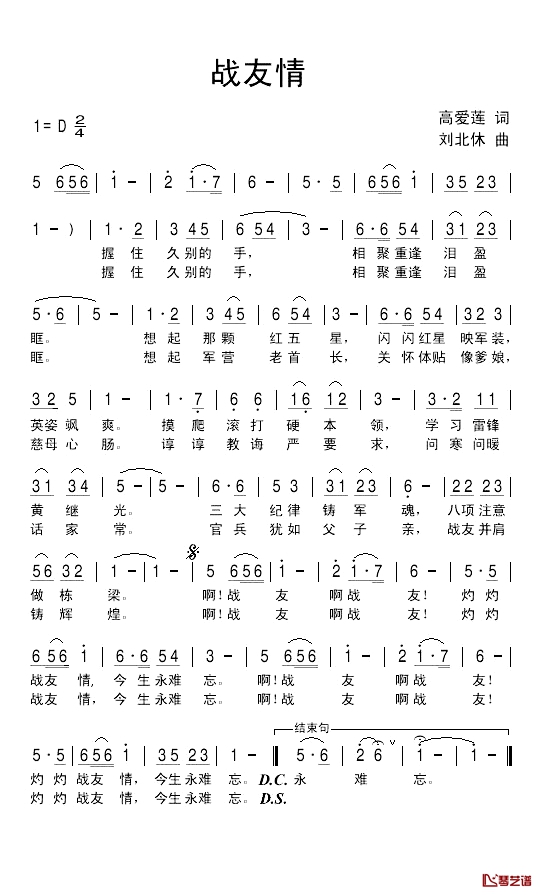 战友情
1= D 2/4
高爱莲 词
刘北休 曲
5 656 | 1 - | 2 1·7 | 6 - | 5·5 | 656 1 | 35 23 |
1 - ) | 1·2 | 3 45 | 6 54 | 3 - | 6·6 54 | 31 23 |
握 住 久 别的 手， 相 聚 重逢 泪 盈
握 住 久 别的 手， 相 聚 重逢 泪 盈
5·6 | 5 - | 1·2 | 3 45 | 6 54 | 3 - | 6·6 54 | 32 3 |
眶。 想 起 那 颗 红 五 星， 闪 闪 红星 映军 装，
眶。 想 起 军 营 老 首 长， 关 怀 体贴 像爹 娘，
32 5 | 1 - | 1·7 | 6 65 | 16 12 | 3 - | 3·2 11 |
英姿 飒 爽。 摸 爬 滚 打 硬 本 领， 学 习 雷锋
慈母 心 肠。 谆 谆 教 诲 严 要 求， 问 寒 问暖
31 34 | 5 - | 5 - | 6·6 | 53 | 31 23 | 6 - | 22 23 |
黄 继 光。 三 大 纪 律 铸 军 魂， 八项 注意
话 家 常。 官 兵 犹 如 父 子 亲， 战友 并肩
56 32 | 1 - | 1 - | 5 656 | 1 - | 2 1·7 | 6 - | 5·5 |
做 栋 梁。 啊！战 友 啊 战 友！ 灼 灼
铸 辉 煌。 啊！战 友 啊 战 友！ 灼 灼
656 1 | 6·6 54 | 3 - | 5 656 | 1 - | 2 1·7 | 6 - |
战友 情， 今 生 永难 忘。 啊！战 友 啊 战 友！
战友 情， 今 生 永难 忘。 啊！战 友 啊 战 友！
结束句
5·5 | 656 1 | 35 23 | 1 - | 5·6 | 2 6 | 1 - |
灼 灼 战友 情， 今生 永难 忘。 D.C. 永 难 忘。
灼 灼 战友 情， 今生 永难 忘。 D.S.
琴艺谱